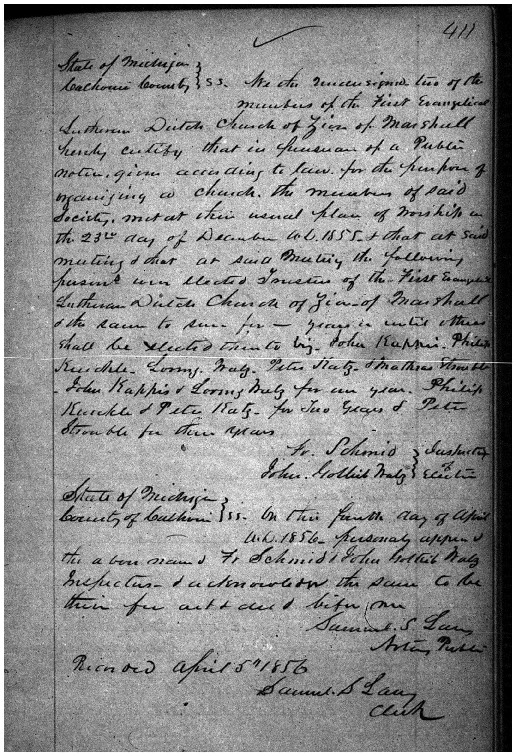 411
State of Michigan }
Calhoun County } S.S. We the undersigned two of the
members of the First Evangelical
Lutheran Dutch Church of Zion of Marshall
hereby certify that in pursuan of a Public
notice given according to law for the purpose of
organizing a church. the members of said
Society, met at their usual place of Worship on
the 23rd day of December A.D. 1855 & that at said
meeting & that at said Meeting the following
persons were elected Trustees of the First Evangelical
Lutheran Dutch Church of Zion of Marshall
& the same to serve for — years or until others
shall be elected viz. John Kappis. Philip
Kuechle. Lorenz Walz. Peter Katz. & Mathias Strouble
- John Kappis & Lorenz Walz for one year. Philip
Kueckle & Peter Katz for Two Years & Peter
Strouble for three years
Fr. Schmid } Inspectors
John Gottlieb Walz } of Election
State of Michigan }
County of Calhoun } SS. On this fourth day of April
A.D. 1856 personaly appeared
the above named Fr Schmid & John Gottlieb Walz
Inspectors & acknowledged the same to be
their free act & deed before me
Samuel S Lacy
Notary Public
Recorded April 5th 1856
Samuel S Lacy
Clerk